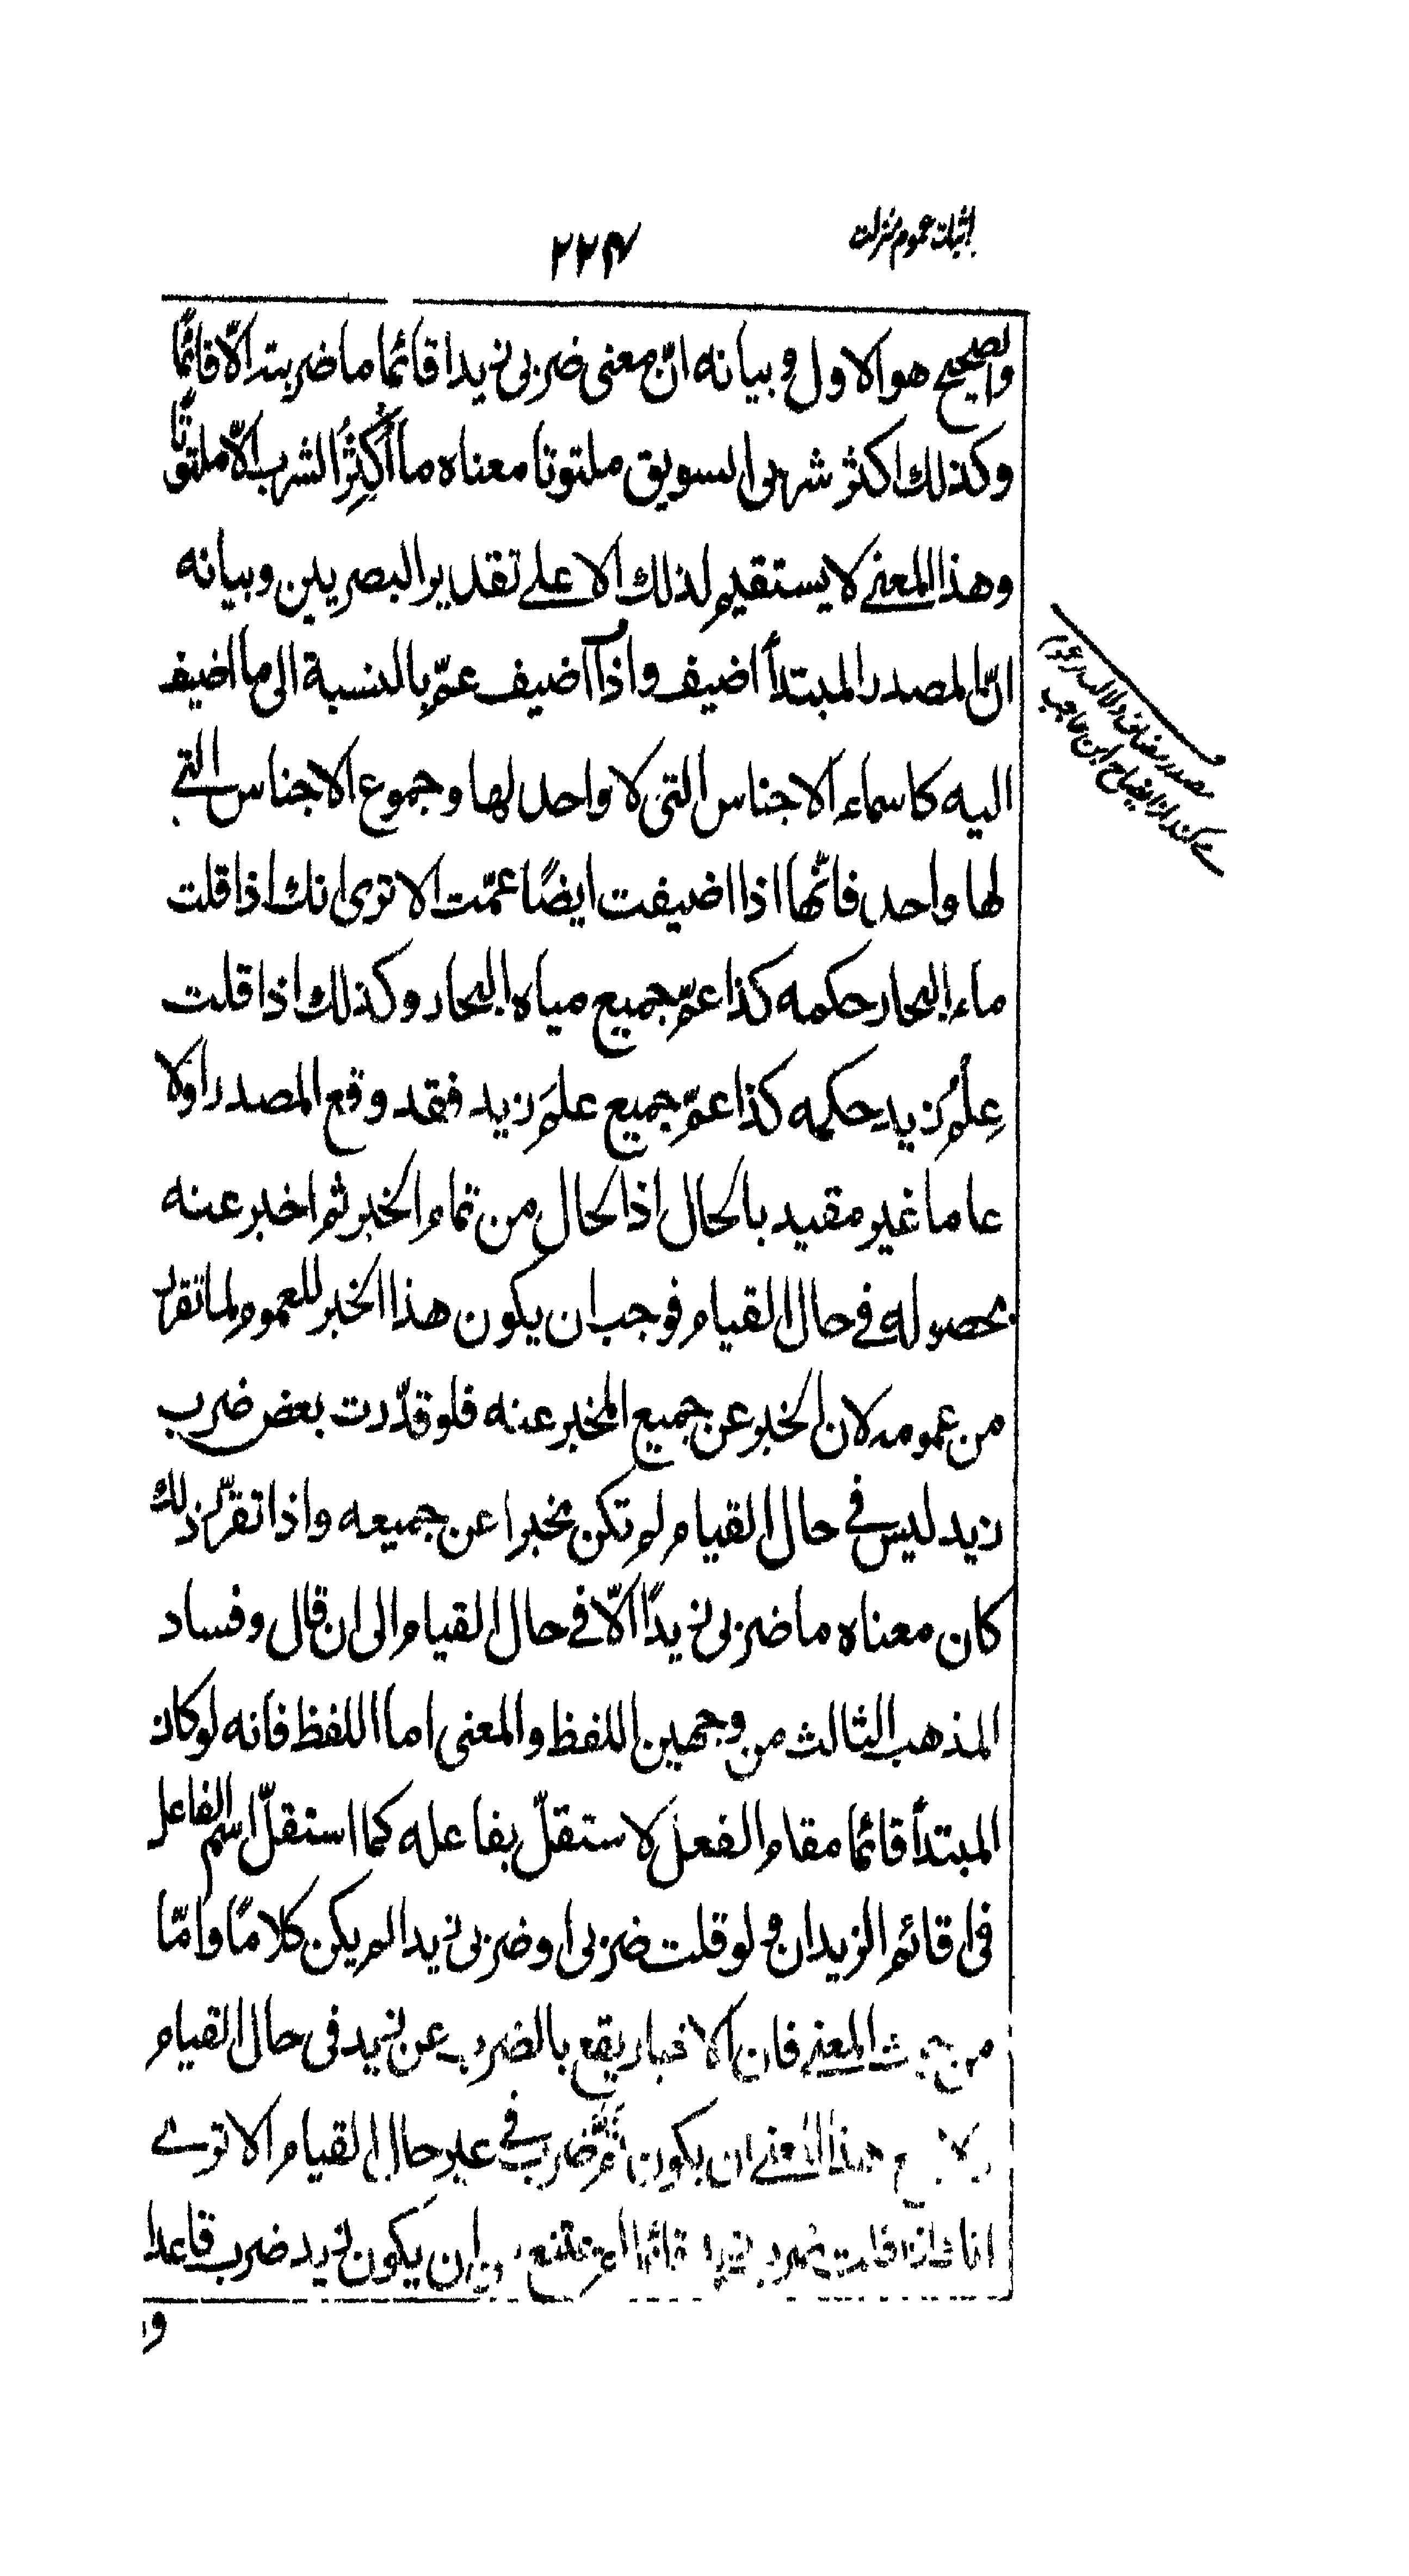 اثبات عموم منزلت
۲۲۴
والصحيح هو الاول وبيانه انّ معنى ضربى زيدا قائما ما ضربته الّا قائمًا
وكذلك اكثر شربى السويق ملتوتا معناه ما أُكثِرُ الشرب الّا ملتوتًا
وهذا المعنے لا يستقيم لذلك الا علے تقدير البصريين وبيانه
انّ المصدر المبتدأ اضيف واذا اضيف عمّ بالنسبة الى ما اضيف
اليه كاسماء الاجناس التى لا واحد لها وجموع الاجناس التے
لها واحد فانّها اذا اضيفت ايضًا عمّت الا ترى انك اذا قلت
ماء البحار حكمه كذا عمّ جميع مياه البحار وكذلك اذا قلت
عِلْمُ زيد حكمه كذا عمّ جميع علم زيد فقد وقع المصدر اوّلا
عاما غير مقيد بالحال اذ الحال من تمام الخبر ثم اخبر عنه
بحصوله فے حال القيام فوجب ان يكون هذا الخبر للعموم لما تقرر
من عمومه لان الخبر عن جميع المخبر عنه فلو قدّرت بعض ضرب
زيد ليس فے حال القيام لم تكن مخبرا عن جميعه واذا تقرّر ذلك
كان معناه ما ضربى زيدًا الّا فے حال القيام الى ان قال وفساد
المذهب الثالث من وجهين اللفظ والمعنى اما اللفظ فانه لو كان
المبتدأ قائما مقام الفعل لاستقلّ بفاعله كما استقلّ اسم الفاعل
فى اقائم الزيدان ولو قلت ضربى او ضربى زيدا لم يكن كلامًا وامّا
من حيث المعنے فان الاخبار يقع بالضرب عن زيد فى حال القيام
ولا يمنع هذا المعنے ان يكون ثمّ ضرب فے غير حال القيام الا ترے
انك اذا قلت ضرب زيد قائما لم يمتنع من ان يكون زيد ضرب قاعدا
وا
مصدر مضاف دلالت بر عموم
مے كند از ايضاح ابن حاجب